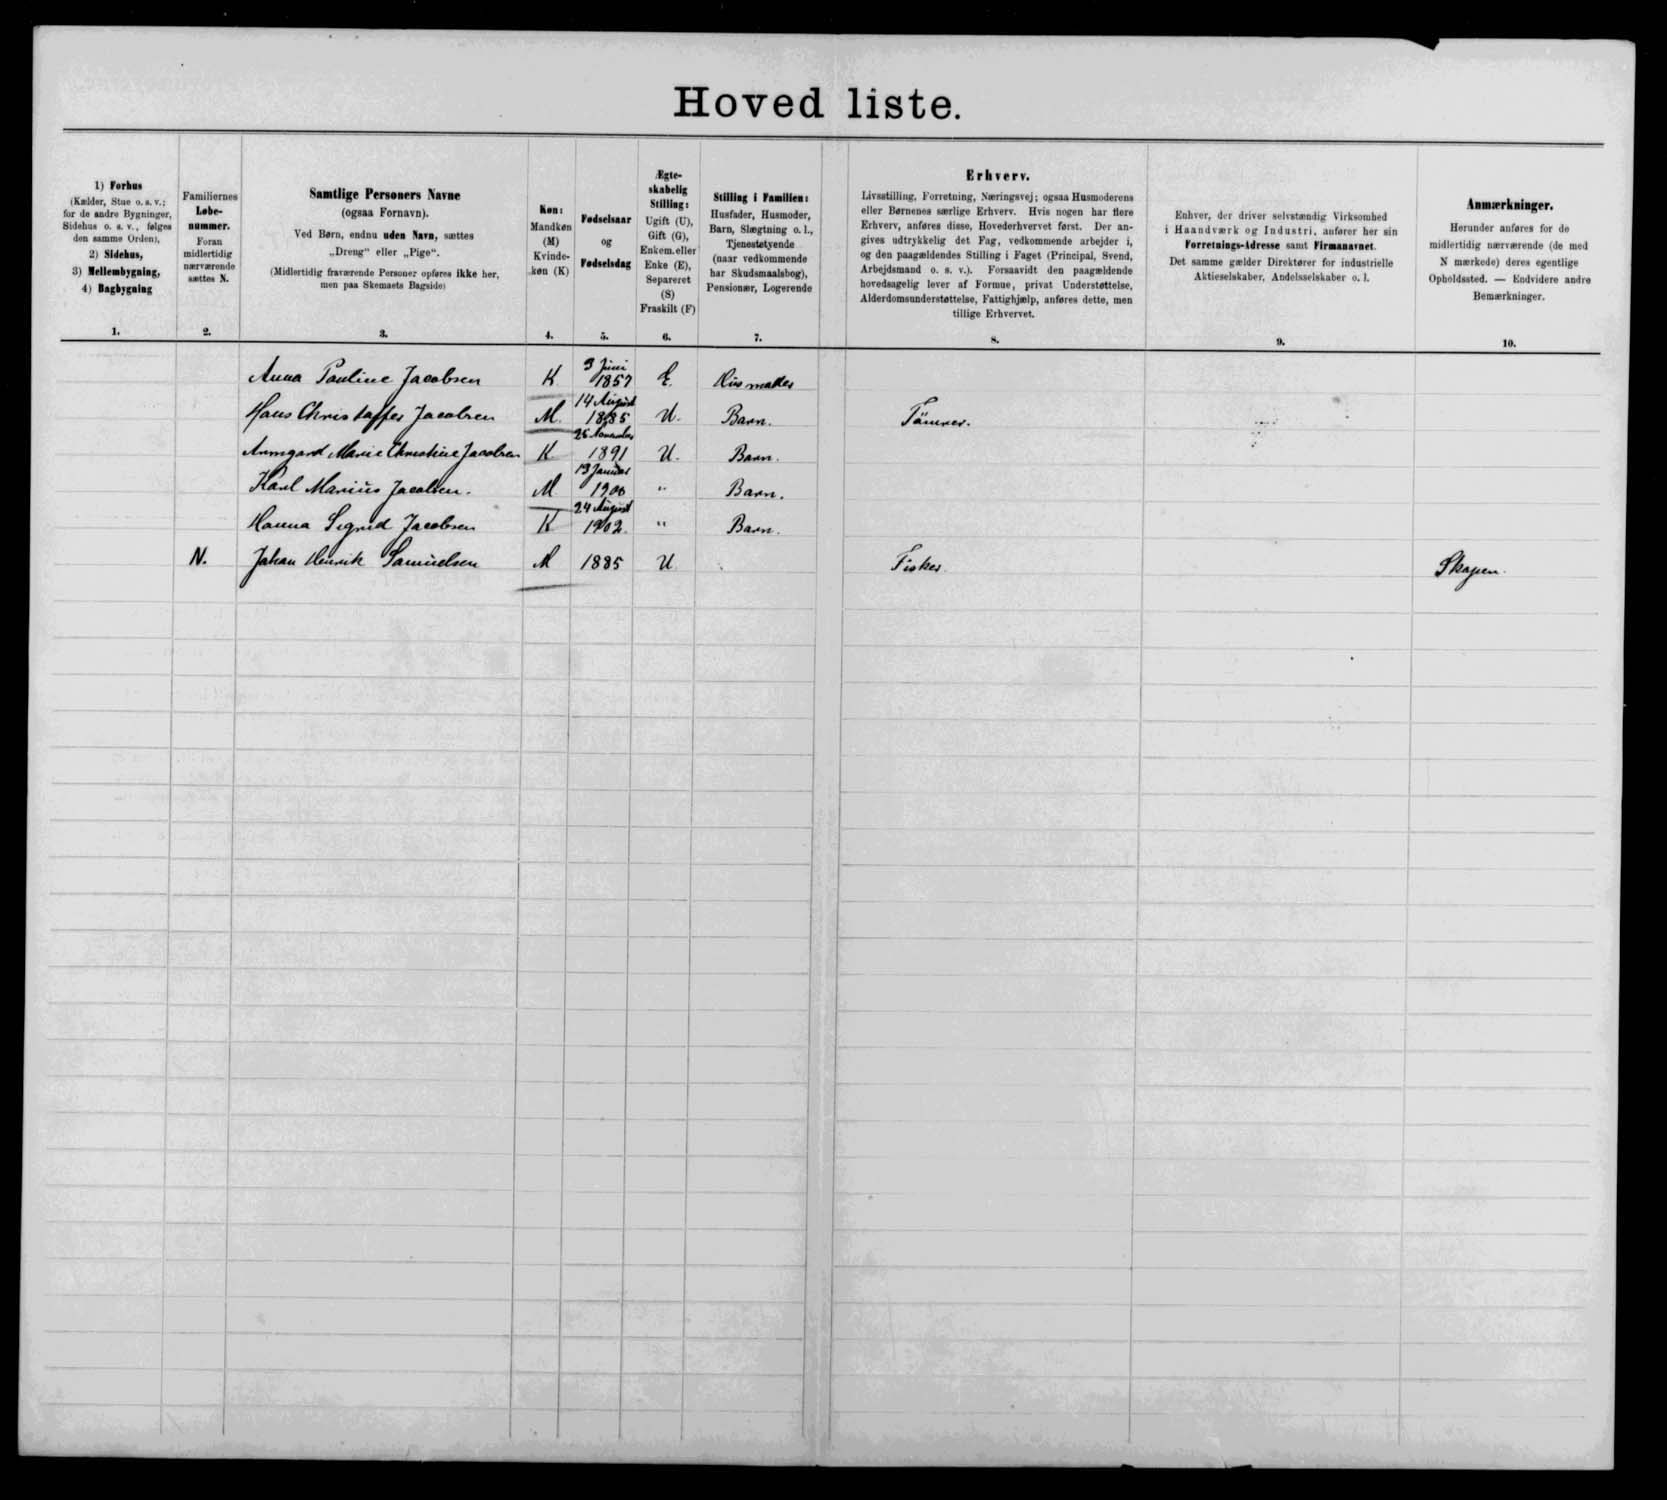 Hoved liste.
1) Forhus
(Kælder, Stue o. s. v.;
for de andre Bygninger,
Sidehus o. s. v., følges
den samme Orden),
2) Sidehus,
3) Mellembygning,
4) Bagbygning
1.
Familiernes
Løbe-
nummer.
Foran
midlertidig
nærværende
sættes N.
2.
Samtlige Personers Navne
(ogsaa Fornavn).
Ved Børn, endnu uden Navn, sættes
„Dreng“ eller „Pige“.
(Midlertidig fraværende Personer opføres ikke her,
men paa Skemaets Bagside)
3.
Køn:
Mandkøn
(M)
Kvinde-
køn (K)
4.
Fødselsaar
og
Fødselsdag
5.
Ægte-
skabelig
Stilling:
Ugift (U),
Gift (G),
Enkem. eller
Enke (E),
Separeret
(S)
Fraskilt (F)
6.
Stilling i Familien:
Husfader, Husmoder,
Barn, Slægtning o. l.,
Tjenestetyende
(naar vedkommende
har Skudsmaalsbog),
Pensionær, Logerende
7.
Erhverv.
Livsstilling, Forretning, Næringsvej; ogsaa Husmoderens
eller Børnenes særlige Erhverv. Hvis nogen har flere
Erhverv, anføres disse, Hovederhvervet først. Der an-
gives udtrykkelig det Fag, vedkommende arbejder i,
og den paagældendes Stilling i Faget (Principal, Svend,
Arbejdsmand o. s. v.). Forsaavidt den paagældende
hovedsagelig lever af Formue, privat Understøttelse,
Alderdomsunderstøttelse, Fattighjælp, anføres dette, men
tillige Erhvervet.
8.
Enhver, der driver selvstændig Virksomhed
i Haandværk og Industri, anfører her sin
Forretnings-Adresse samt Firmanavnet.
Det samme gælder Direktører for industrielle
Aktieselskaber, Andelsselskaber o. l.
9.
Anmærkninger.
Herunder anføres for de
midlertidig nærværende (de med
N mærkede) deres egentlige
Opholdssted. — Endvidere andre
Bemærkninger.
10.
Anna Pauline Jacobsen K 3 Juni 1857 E. Husmoder
Hans Christoffer Jacobsen M. 14 August 1885 U. Barn. Tømrer.
Armgard Marie Christine Jacobsen K 25 November 1891 U. Barn.
Karl Marius Jacobsen. M 13 Januar 1900 " Barn.
Hanna Sigrid Jacobsen K 24 August 1902 " Barn.
N. Johan Henrik Samuelsen M 1885 U Fisker. Skagen.